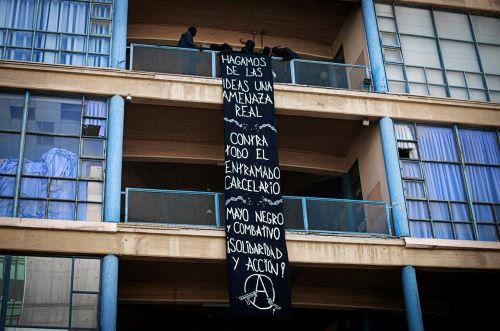 HAGAMOS
DE LAS
IDEAS UNA
AMENAZA
REAL
CONTRA
TODO EL
ENTRAMADO
CARCELARIO
MAYO NEGRO
Y COMBATIVO
¡SOLIDARIDAD
Y ACCIÓN!